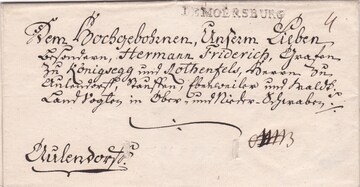 D.MOERSBURG
4
Dem Hochgebohrnen, Unserm Lieben
besondern, Hermann Friderich, Grafen
zu Königsegg und Rothenfels, Herrn zu
Aulendorff, Stauffen, Ebenweiler und Waldt,
Land Vogten in Ober- und Nieder-Schwaben
Aulendorf